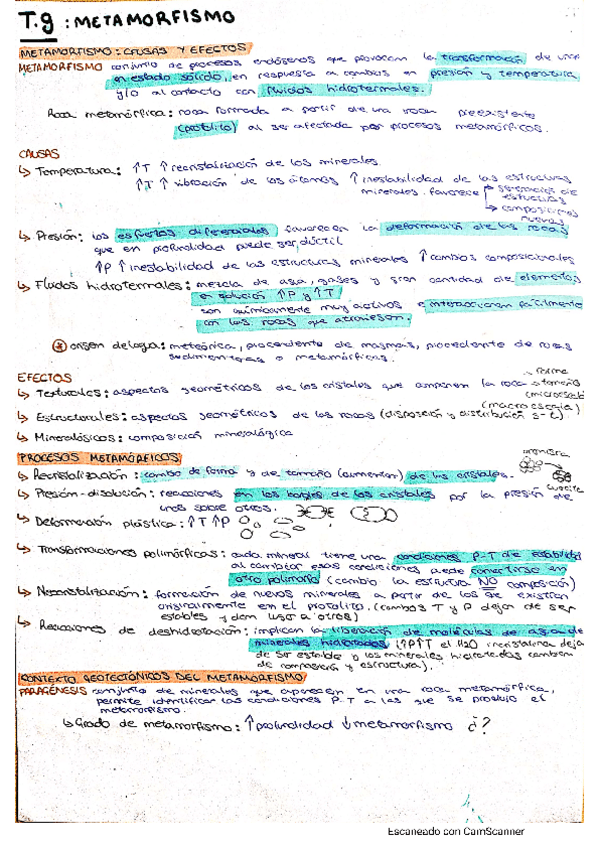 T.9 : METAMORFISMO
METAMORFISMO : CAUSAS Y EFECTOS
METAMORFISMO conjunto de procesos endógenos que provocan la transformación de una
en estado sólido, en respuesta a cambios en presión y temperatura
y/o al contacto con fluidos hidrotermales.
Roca metamórfica: roca formada a partir de una roca preexistente
(protolito) al ser afectada por procesos metamórficos.
CAUSAS
↳ Temperatura: ↑T ↑ recristalización de los minerales.
↑T ↑ vibración de los átomos ↑ inestabilidad de las estructuras
minerales. favorece
estructuras
composiciones
nuevas
↳ Presión: los esfuerzos diferenciales favorecen la deformación de las rocas
que en profundidad puede ser dúctil
↑P ↑ inestabilidad de las estructuras minerales ↑ cambios composicionales
↳ Fluidos hidrotermales: mezcla de agua, gases y gran cantidad de elementos
en solución ↑P y ↑T
son químicamente muy activos e interaccionan fácilmente
con las rocas que atraviesan.
* origen del agua: meteórica, procedente de magmas, procedente de rocas
sedimentarias o metamórficas.
EFECTOS
↳ Texturales: aspectos geométricos de los cristales que componen la roca
forma
tamaño
(microescala)
↳ Estructorales: aspectos geométricos de las rocas (disposición y distribución S-L)
(macroescala)
↳ Mineralógicos: composición mineralógica
PROCESOS METAMÓRFICOS
↳ Recristalización: cambio de forma y de tamaño (aumentan) de los cristales.
↳ Presión-disolución: reacciones en los bordes de los cristales por la presión de
unos sobre otros.
↳ Deformación plástica: ↑T ↑P
↳ Transformaciones polimórficas: cada mineral tiene una condiciones P-T de estabilidad
al cambiar esas condiciones puede convertirse en
otro polimorfo (cambio la estructura NO composición)
↳ Neocristalización: formación de nuevos minerales a partir de los que existían
originalmente en el protolito. (cambios T y P dejan de ser
estables y dan lugar a otros)
↳ Reacciones de deshidratación: implican la liberación de moléculas de agua de
minerales hidratados (↑P↑T el H2O incristalina deja
de ser estable y los minerales hidratados cambian
de composición y estructura).
CONTEXTO GEOTECTÓNICOS DEL METAMORFISMO
PARAGÉNESIS conjunto de minerales que aparecen en una roca metamórfica,
permite identificar las condiciones P-T a las que se produjo el
metamorfismo.
↳ Grado de metamorfismo: ↑ profundidad ↓ metamorfismo ¿?
Escaneado con CamScanner